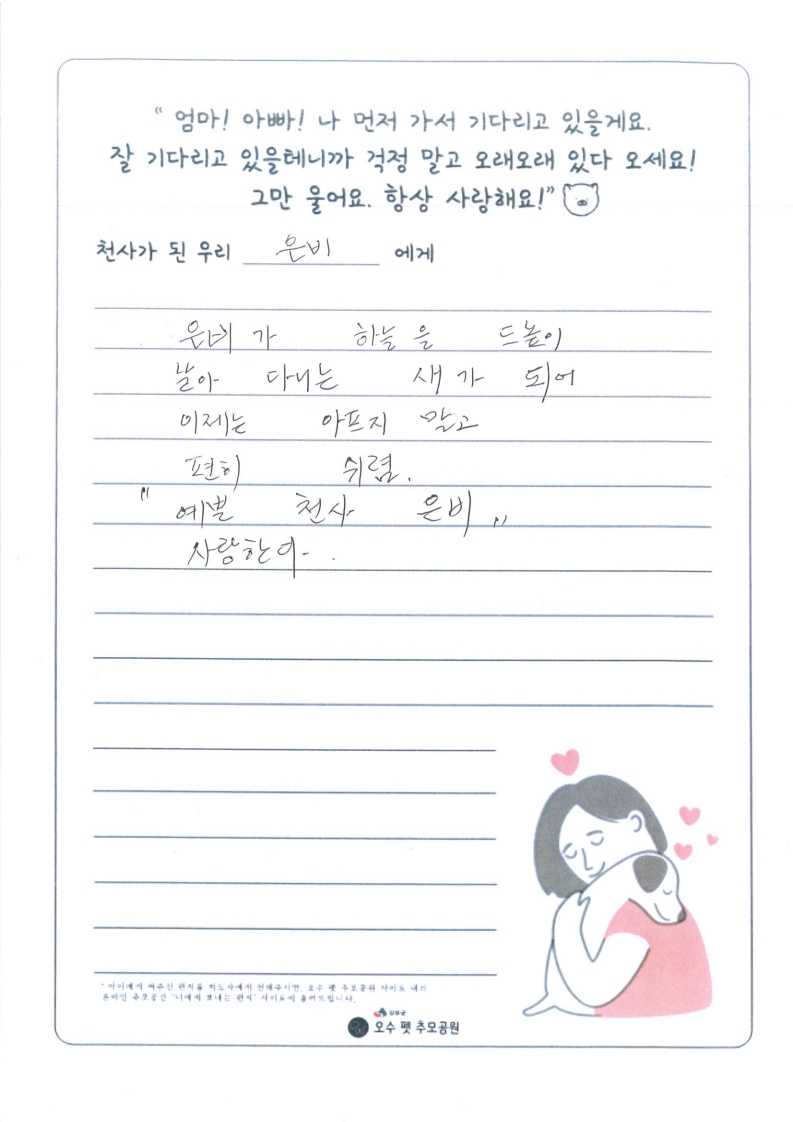 “ 엄마! 아빠! 나 먼저 가서 기다리고 있을게요.
잘 기다리고 있을테니까 걱정 말고 오래오래 있다 오세요!
그만 울어요. 항상 사랑해요!”
천사가 된 우리 은비 에게
은비가 하늘을 드높이
날아 다니는 새가 되어
이제는 아프지 말고
편히 쉬렴.
“예쁜 천사 은비„
사랑한다.
* 아이에게 써주신 편지를 지도사에게 전해주시면, 오수 펫 추모공원 사이트 내의
온라인 추모공간 '너에게 보내는 편지' 사이트에 올려드립니다.
임실군
오수 펫 추모공원